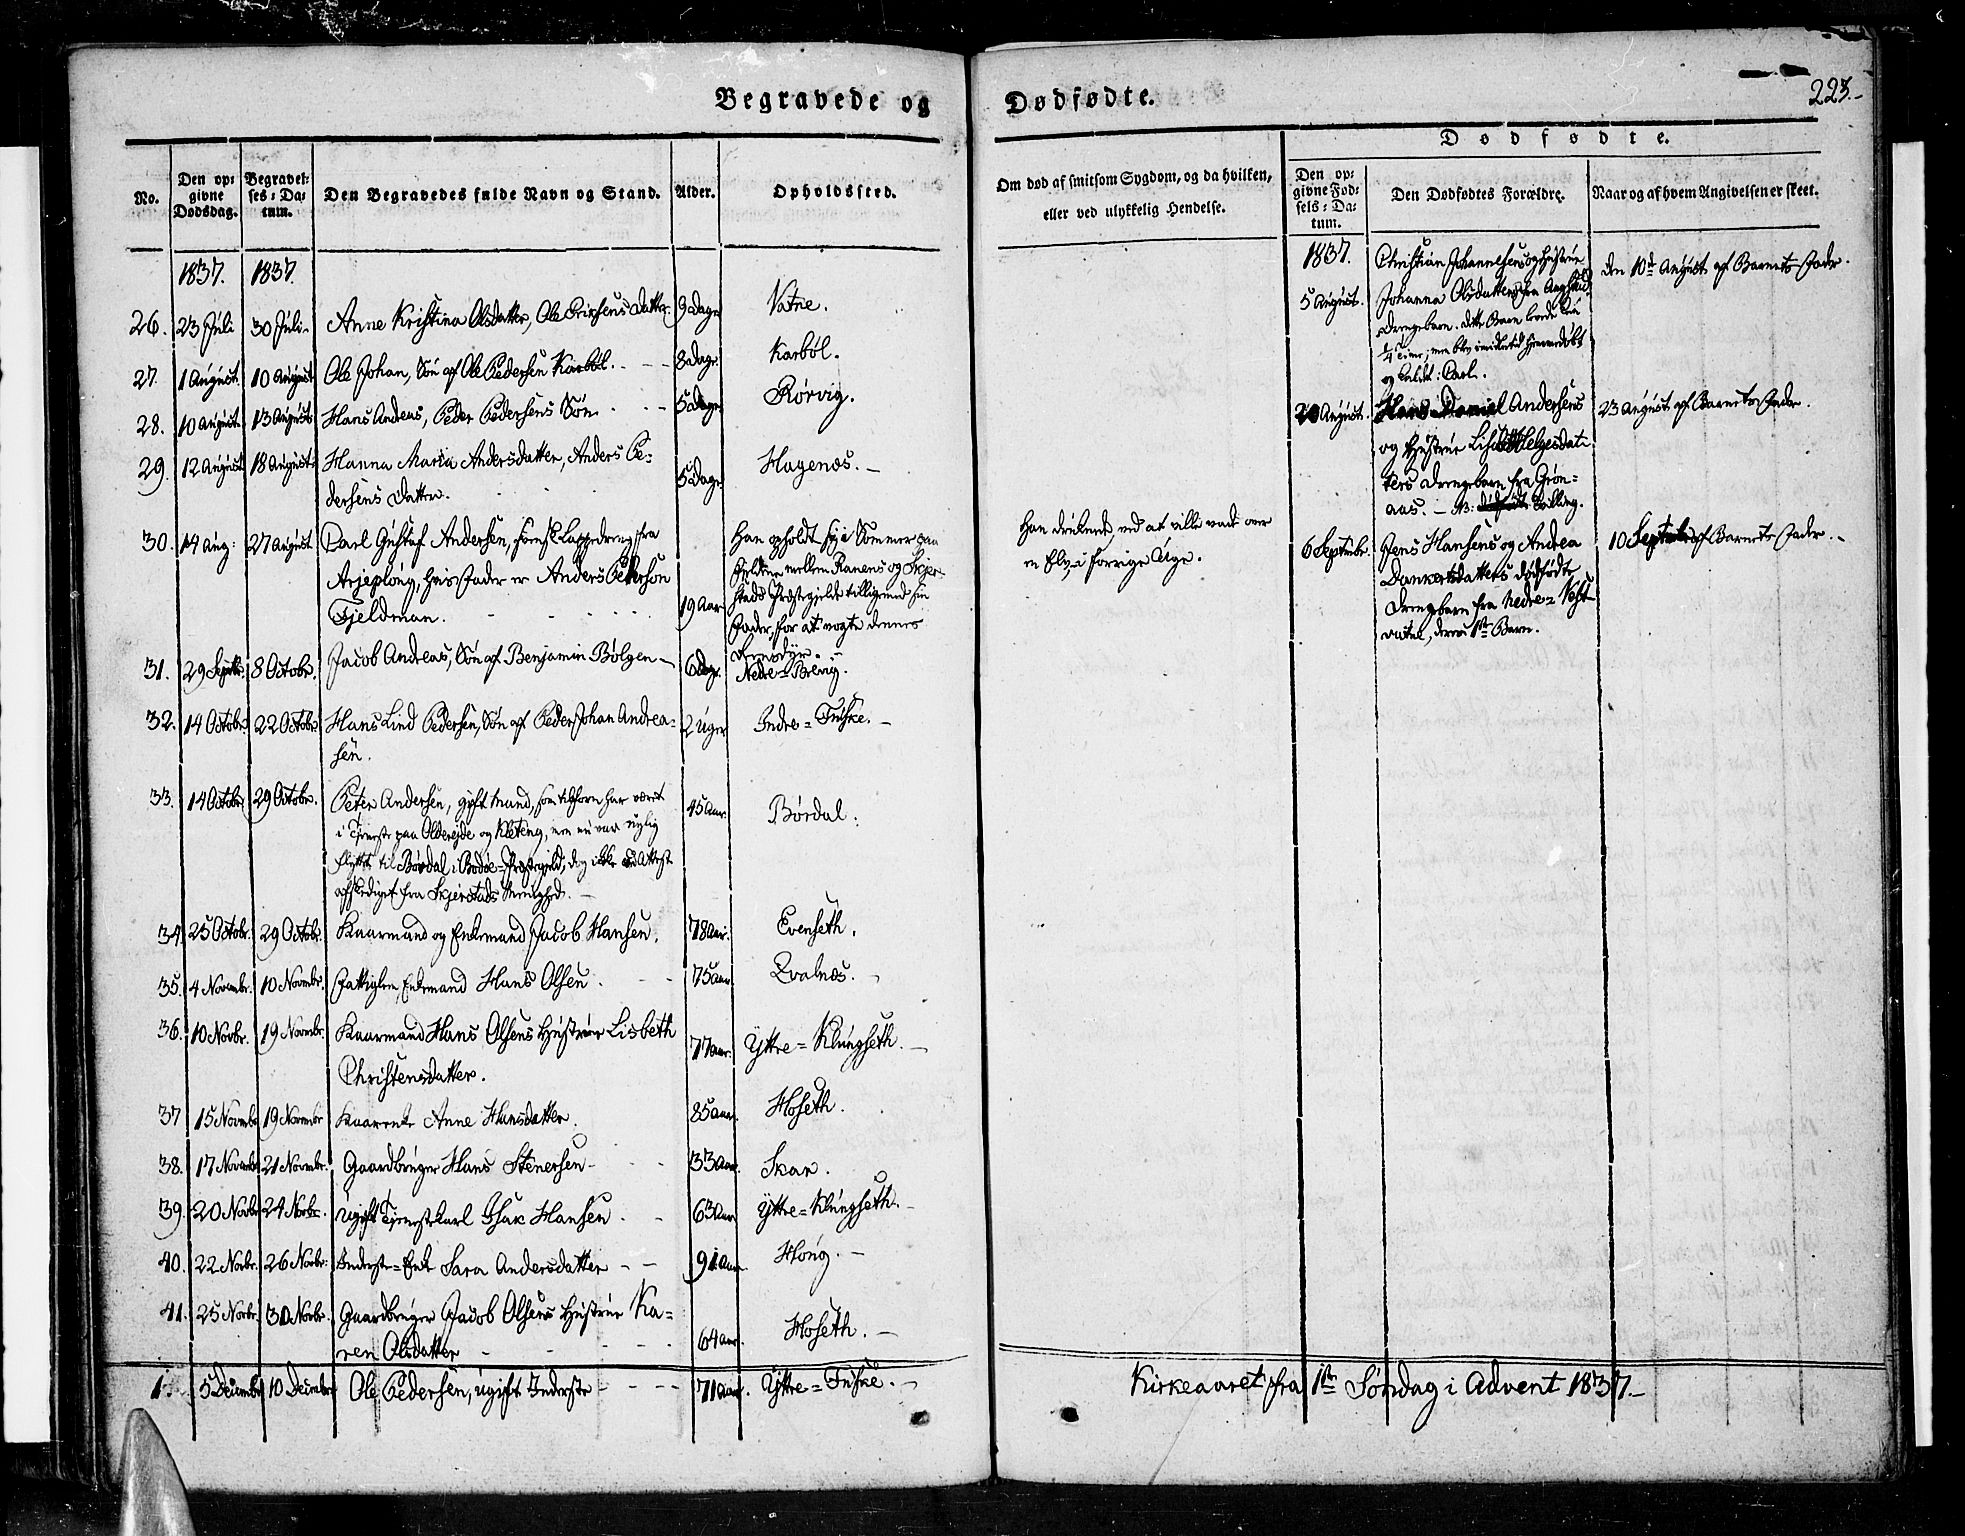 Begravede og Dødfødte.
223.
No.
Den op=
givne
Dødsdag.
Begravel=
ses=Da=
tum.
Den Begravedes fulde Navn og Stand.
Alder.
Opholdssted.
Om død af smitsom Sygdom, og da hvilken,
eller ved ulykkelig Hendelse.
Dødfødte.
Den op=
givne Fød=
sels=Da=
tum.
Den Dødfødtes Forældre.
Naar og af hvem Angivelsen er skeet.
1837. 1837.
26. 23 Juli 30 Juli Anne Kristina Olsdatter, Ole Erichsens Datter 9 Dage Vatne.
27. 1 August. 10 August Ole Johan, Søn af Ole Pedersen Karbøl. 8 Dage. Karbøl.
28. 10 August. 13 August Hans Andreas, Peder Pedersens Søn 5 Dage Rørvig.
29. 12 August 18 August. Hanna Maria Andersdatter, Anders Pe=
dersens Datter. 5 Dage Hagenæs.
30. 14 Aug: 27 August Carl Gustaf Andersen, Lappedreng fra
Arjeplóug, hvis Fader er Anders Pederson
Fjeldman. 19 Aar
Han opholdt sig i Sommer paa
Fjeldene mellem Ranens og Skjer=
stads Præstegjelde tilligemed sin
Fader, for at vogte dennes
Rensdyr.
Han druknede ved at ville vade over
en Elv i forrige Uge.
31. 29 Septbr. 8 Octobr. Jacob Andreas, Søn af Benjamin Bølgen 6 Dage. Nedre=Brevig.
32. 14 Octobr 22 Octobr Hans Lind Pedersen, Søn af Peder Johan Andrea=
sen. 2 Uger Indre=Fuske.
33. 14 Octobr 29 Octobr. Peter Andersen, gift Mand, som tilforn har været
i Tjeneste paa Oldereide og Kleteng, men nu var nylig
flyttet til Børdal i Bodøe=Præstegjeld, dog ikke ved Attest
afskediget fra Skjerstads Menighed. 45 Aar. Børdal.
34. 25 Octobr. 29 Octobr. Kaarmand og Enkemand Jacob Hansen. 78 Aar. Evenseth.
35. 4 Novembr. 10 Novembr. Fattiglem, Enkemand Hans Olsen. 75 Aar Kvalnæs.
36. 10 Novbr. 19 Novembr. Kaarmand Hans Olsens Hustrue Lisbeth
Christensdatter. 77 Aar. Yttre=Klungseth.
37 15 Novembr 19 Novembr Kaarenke Anne Hansdatter. 85 Aar. Hoseth.
38. 17 Novembr 21 Novembr. Gaardbruger Hans Stenersen 33 Aar. Skar.
39. 20 Novbr 24 Novbr. Ugift Tjenestkarl Isak Hansen. 63 Aar Yttre=Klungseth.
40. 22 Novbr. 26 Novbr. Inderste=Enke Sara Andersdatter 91 Aar. Houg.
41. 25 Novbr. 30 Novbr. Gaardbruger Jacob Olsens Hustrue Ka=
ren Olsdatter 64 Aar Hoseth.
1. 5 December 10 December Ole Pedersen, ugift Inderste 71 Aar. Yttre=Fuske.
Kirkeaaret fra 1ste Søndag i Advent 1837.
1837.
5 August.
Christian Johannesens og Hustrue
Johanna Olsdatters fra
Drengebarn. Dette Barn levede kun
¼ Time; men blev imidlertid hjemmedøbt
og kaldet: Carl.
Den 10de August af Barnets Fader.
20 August. Hans Daniel Andersens
og Hustrue Lisbet Helgesdat=
ters Drengebarn fra Grøn=
aas. NB: Tvilling.
23 August af Barnets Fader.
6 Septembr. Jens Hansens og Andrea
Dankertsdatters dødfødte
Drengebarn fra Nedre=Vest=
vatne, deres 1ste Barn.
10 Septembr af Barnets Fader.